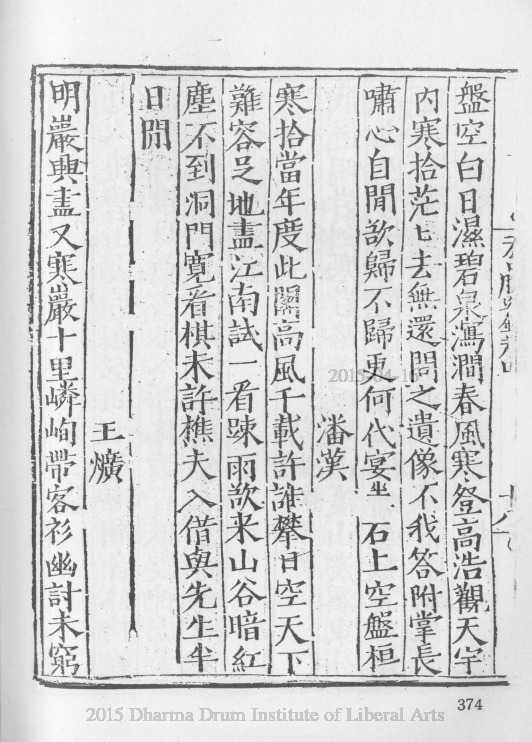 盤空白日濕碧泉瀉澗春風寒登高浩觀天宇
內寒拾茫匕去無還問之遺像不我答附掌長
嘯心自閒欲歸不歸更何代宴坐石上空盤桓
潘漢
寒拾當年度此關高風千載許誰攀日空天下
難容足地盡江南試一看踈雨欲来山谷暗紅
塵不到洞門寬看棋未許樵夫入借與先生半
日閒
王爌
明巖興盡又寒巖十里嶙峋帶客衫幽討未窮
374
2015-04-16
2015 Dharma Drum Institute of Liberal Arts